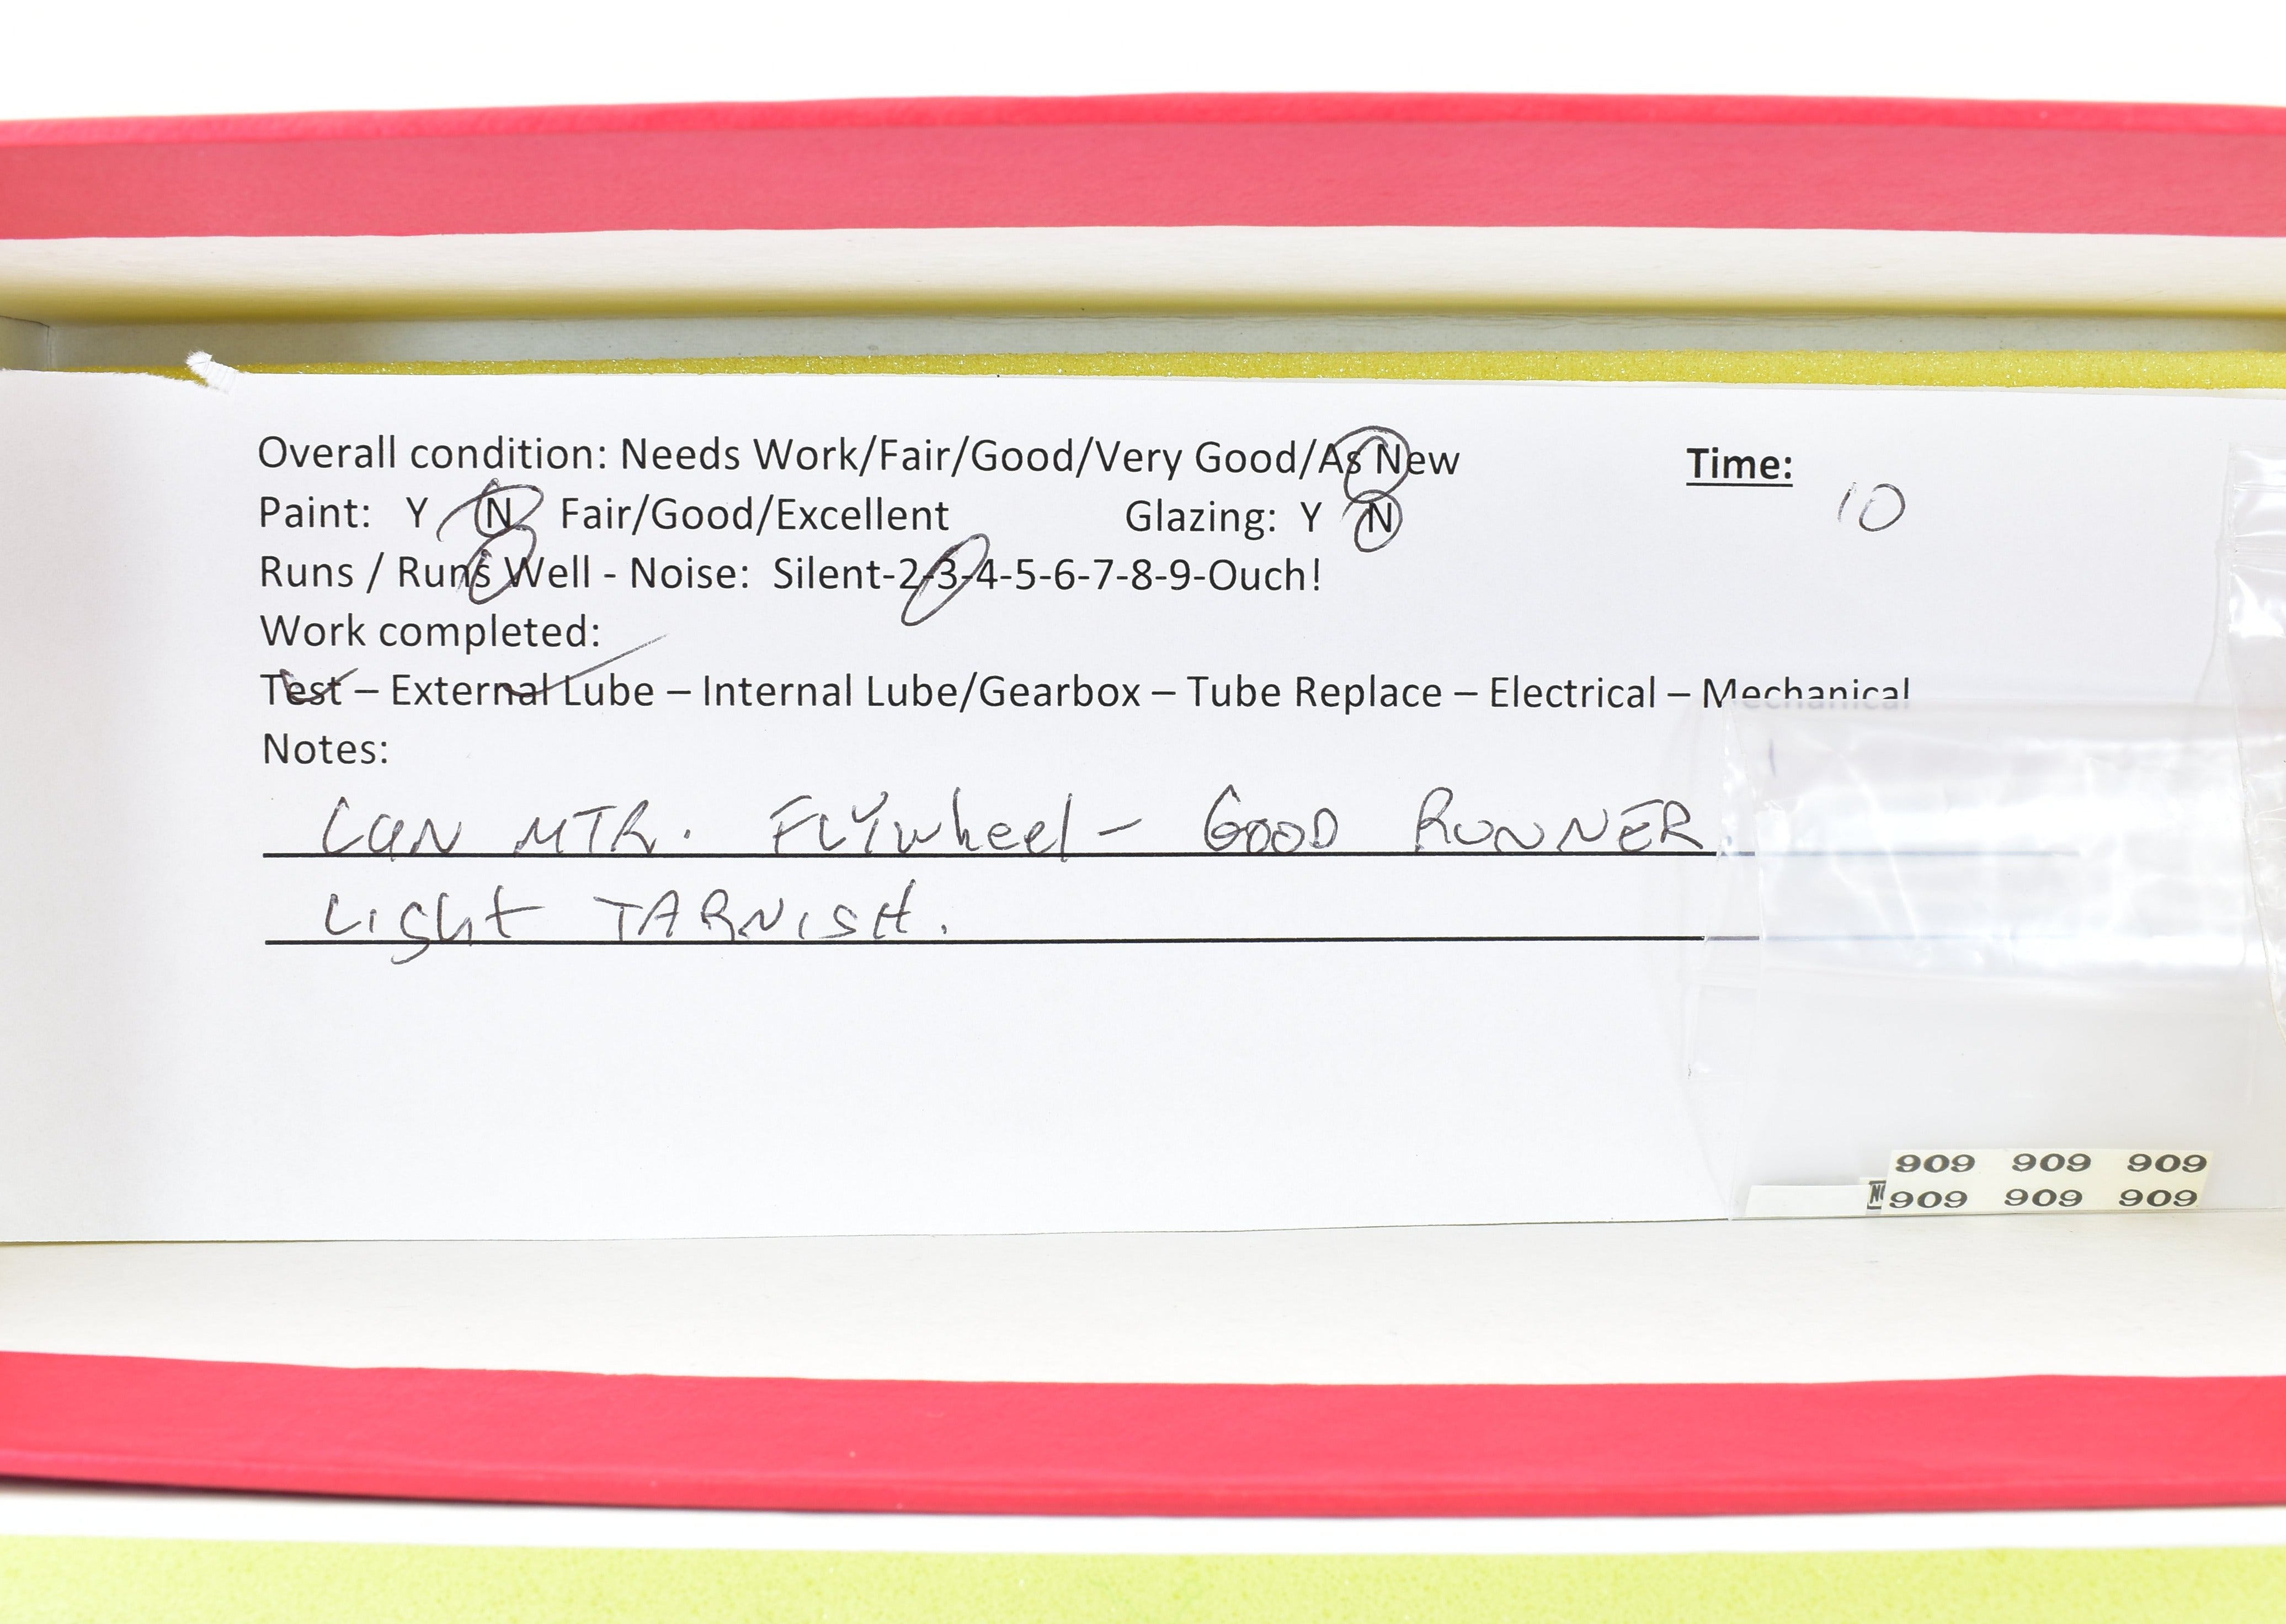 Overall condition: Needs Work/Fair/Good/Very Good/As New Time:
10
Paint: Y N Fair/Good/Excellent Glazing: Y N
Runs / Runs Well - Noise: Silent-2-3-4-5-6-7-8-9-Ouch!
Work completed:
Test – External Lube – Internal Lube/Gearbox – Tube Replace – Electrical – Mechanical
Notes:
CAN MTR. FLYwheel - GOOD RUNNER
LIGht TARNISH.
909 909 909
909 909 909